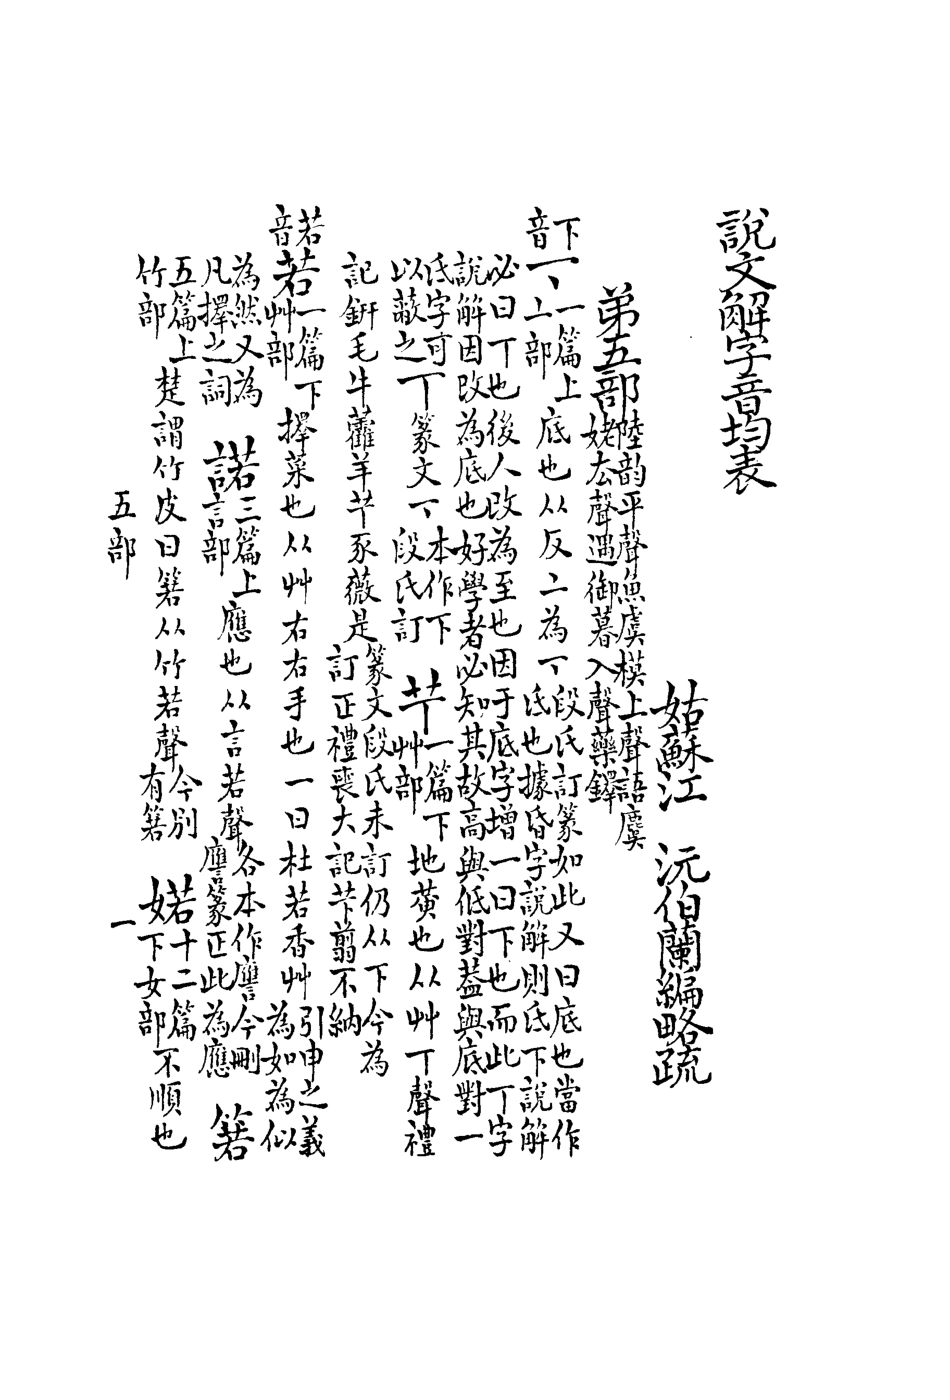 說文解字音均表
姑蘇江 沅伯蘭編略疏
弟五部陸韵平聲魚虞模上聲語麌
姥厺聲遇御暮入聲藥鐸
下音
丅一篇上丄部底也从反二為丅段氏訂篆如此又曰底也當作
氐也據昏字說解則氐下說解
必曰丅也後人改為至也因于底字增一曰下也而此丅字
說解因改為底也好學者必知其故高與低對葢與底對一
氐字可以蔽之丅篆文丅本作下段氏訂 芐一篇下艸部地黃也从艸丅聲禮
記鈃毛牛藿羊芐豕薇是篆文段氏未訂仍从下今為
訂正禮喪大記芐翦不納
若音
若一篇下艸部擇菜也从艸右右手也一曰杜若香艸引申之義
為如為似
為然又為凡擇之詞 諾三篇上言部應也从言若聲各本作譍今刪譍篆正此為應 箬
五篇上竹部楚謂竹皮曰箬从竹若聲今別有箬 婼十二篇下女部不順也
五部 一